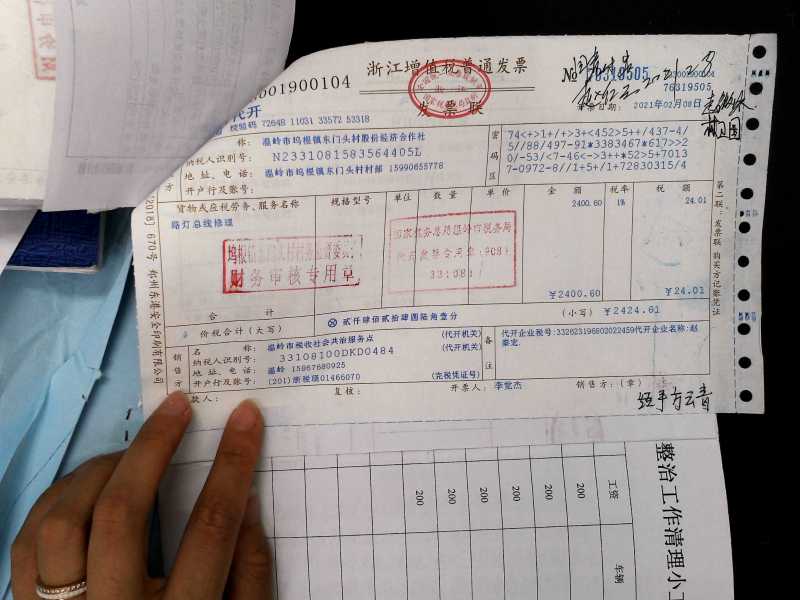 001900104
浙江增值税普通发票
发票联
76319505
3300194104
76319505
代开
校验码 72648 11031 33572 53318
开票日期： 2021年02月08日
称： 温岭市坞根镇东门头村股份经济合作社
纳税人识别号： N2331081583564405L
地址、电话： 温岭市坞根镇东门头村村部 15990655778
方 开户行及账号：
密码区
74<+>1+/+>3+<452>5++/437-4/
5//88/497-91*3383467*617>>2
0/-53/<7-46<->3++*52>5+7013
7-0972-8//1+5+/1+72830315/4
货物或应税劳务、服务名称 规格型号 单位 数量 单价 金额 税率 税额
路灯总线修理 2400.60 1% 24.01
财务审核专用章
国家税务总局温岭市税务局
代开发票专用章
331081
合计 ￥2400.60 ￥24.01
价税合计（大写） ⊗ 贰仟肆佰贰拾肆圆陆角壹分 （小写）￥2424.61
销售方
名称： 温岭市税收社会共治服务点 （代开机关）
纳税人识别号： 33108100DKD0484 （代开机关）
地址、电话： 温岭 15967680925
开户行及账号： (201)浙税票01466070 （完税凭证号）
备注
代开企业税号:332623196802022459代开企业名称:赵
款人： 复核： 开票人： 李觉杰 销售方：（章）
经手方云青
第二联：发票联 购买方记账凭证
[2018] 670号 郑州东港安全印刷有限公司
整治工作清理小工
工资
200
200
200
200
200
200
车辆